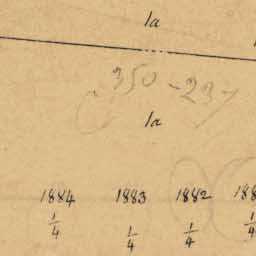 1a
350-237
1a
1884 1883 1882 188
1/4 1/4 1/4 1/4